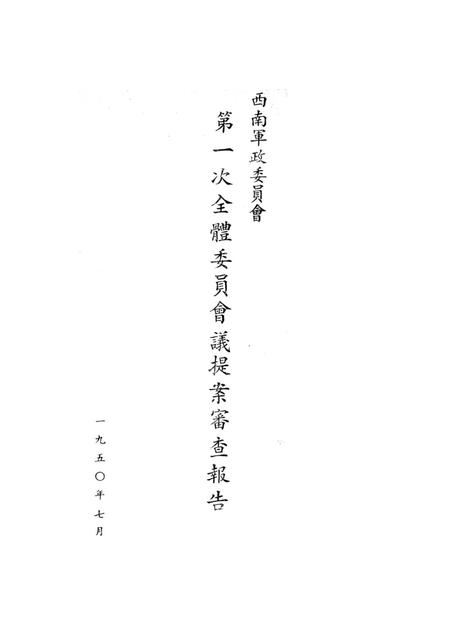 西南軍政委員會
第一次全體委員會議提案審查報告
一九五〇年七月